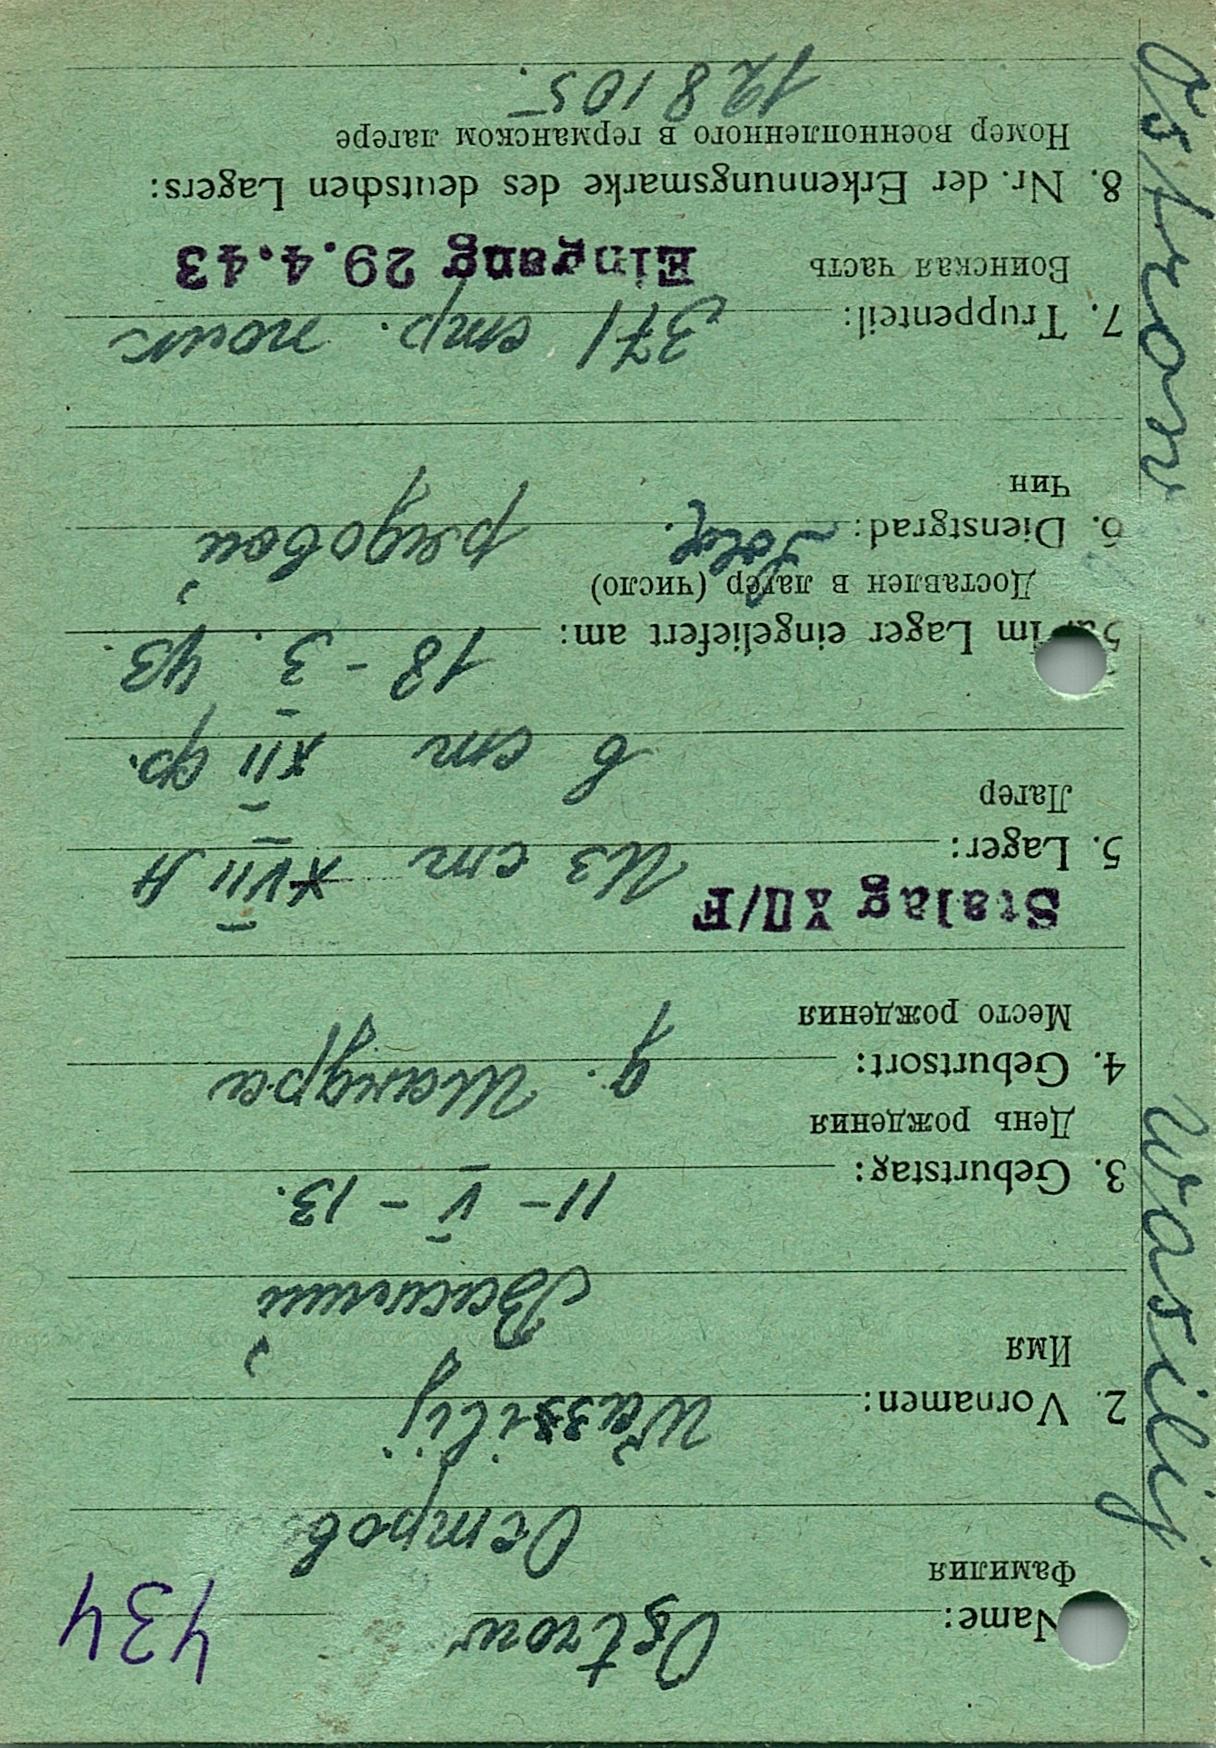 434
Name: Ostrow
Фамилия
Остров
2. Vornamen: Wassilij
Имя
Василий
3. Geburtstag: 11-V-13.
День рождения
4. Geburtsort: д. Шандра
Место рождения
Stalag XII/F
5. Lager: Из ст XVII A
Лагер
в ст XII ф.
5a. Im Lager eingeliefert am: 18-3. 43
Доставлен в лагер (число)
6. Dienstgrad: Sold. рядовой
Чин
7. Truppenteil: 371 стр. полк
Воинская часть
Eingang 29.4.43
8. Nr. der Erkennungsmarke des deutschen Lagers:
Номер военнопленного в германском лагере
128105.
Ostrow Wasilij